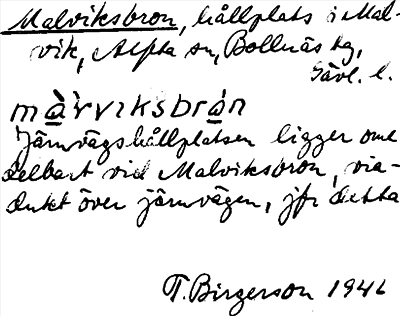 Malviksbron, hållplats i Mal-
vik, Alfta sn, Bollnäs tg,
Gävl. l.
màrviksbrán
Järnvägshållplatsen ligger ome
delbart vid Malviksbron, via-
dukt över järnvägen, jfr detta
T. Birgerson 1946